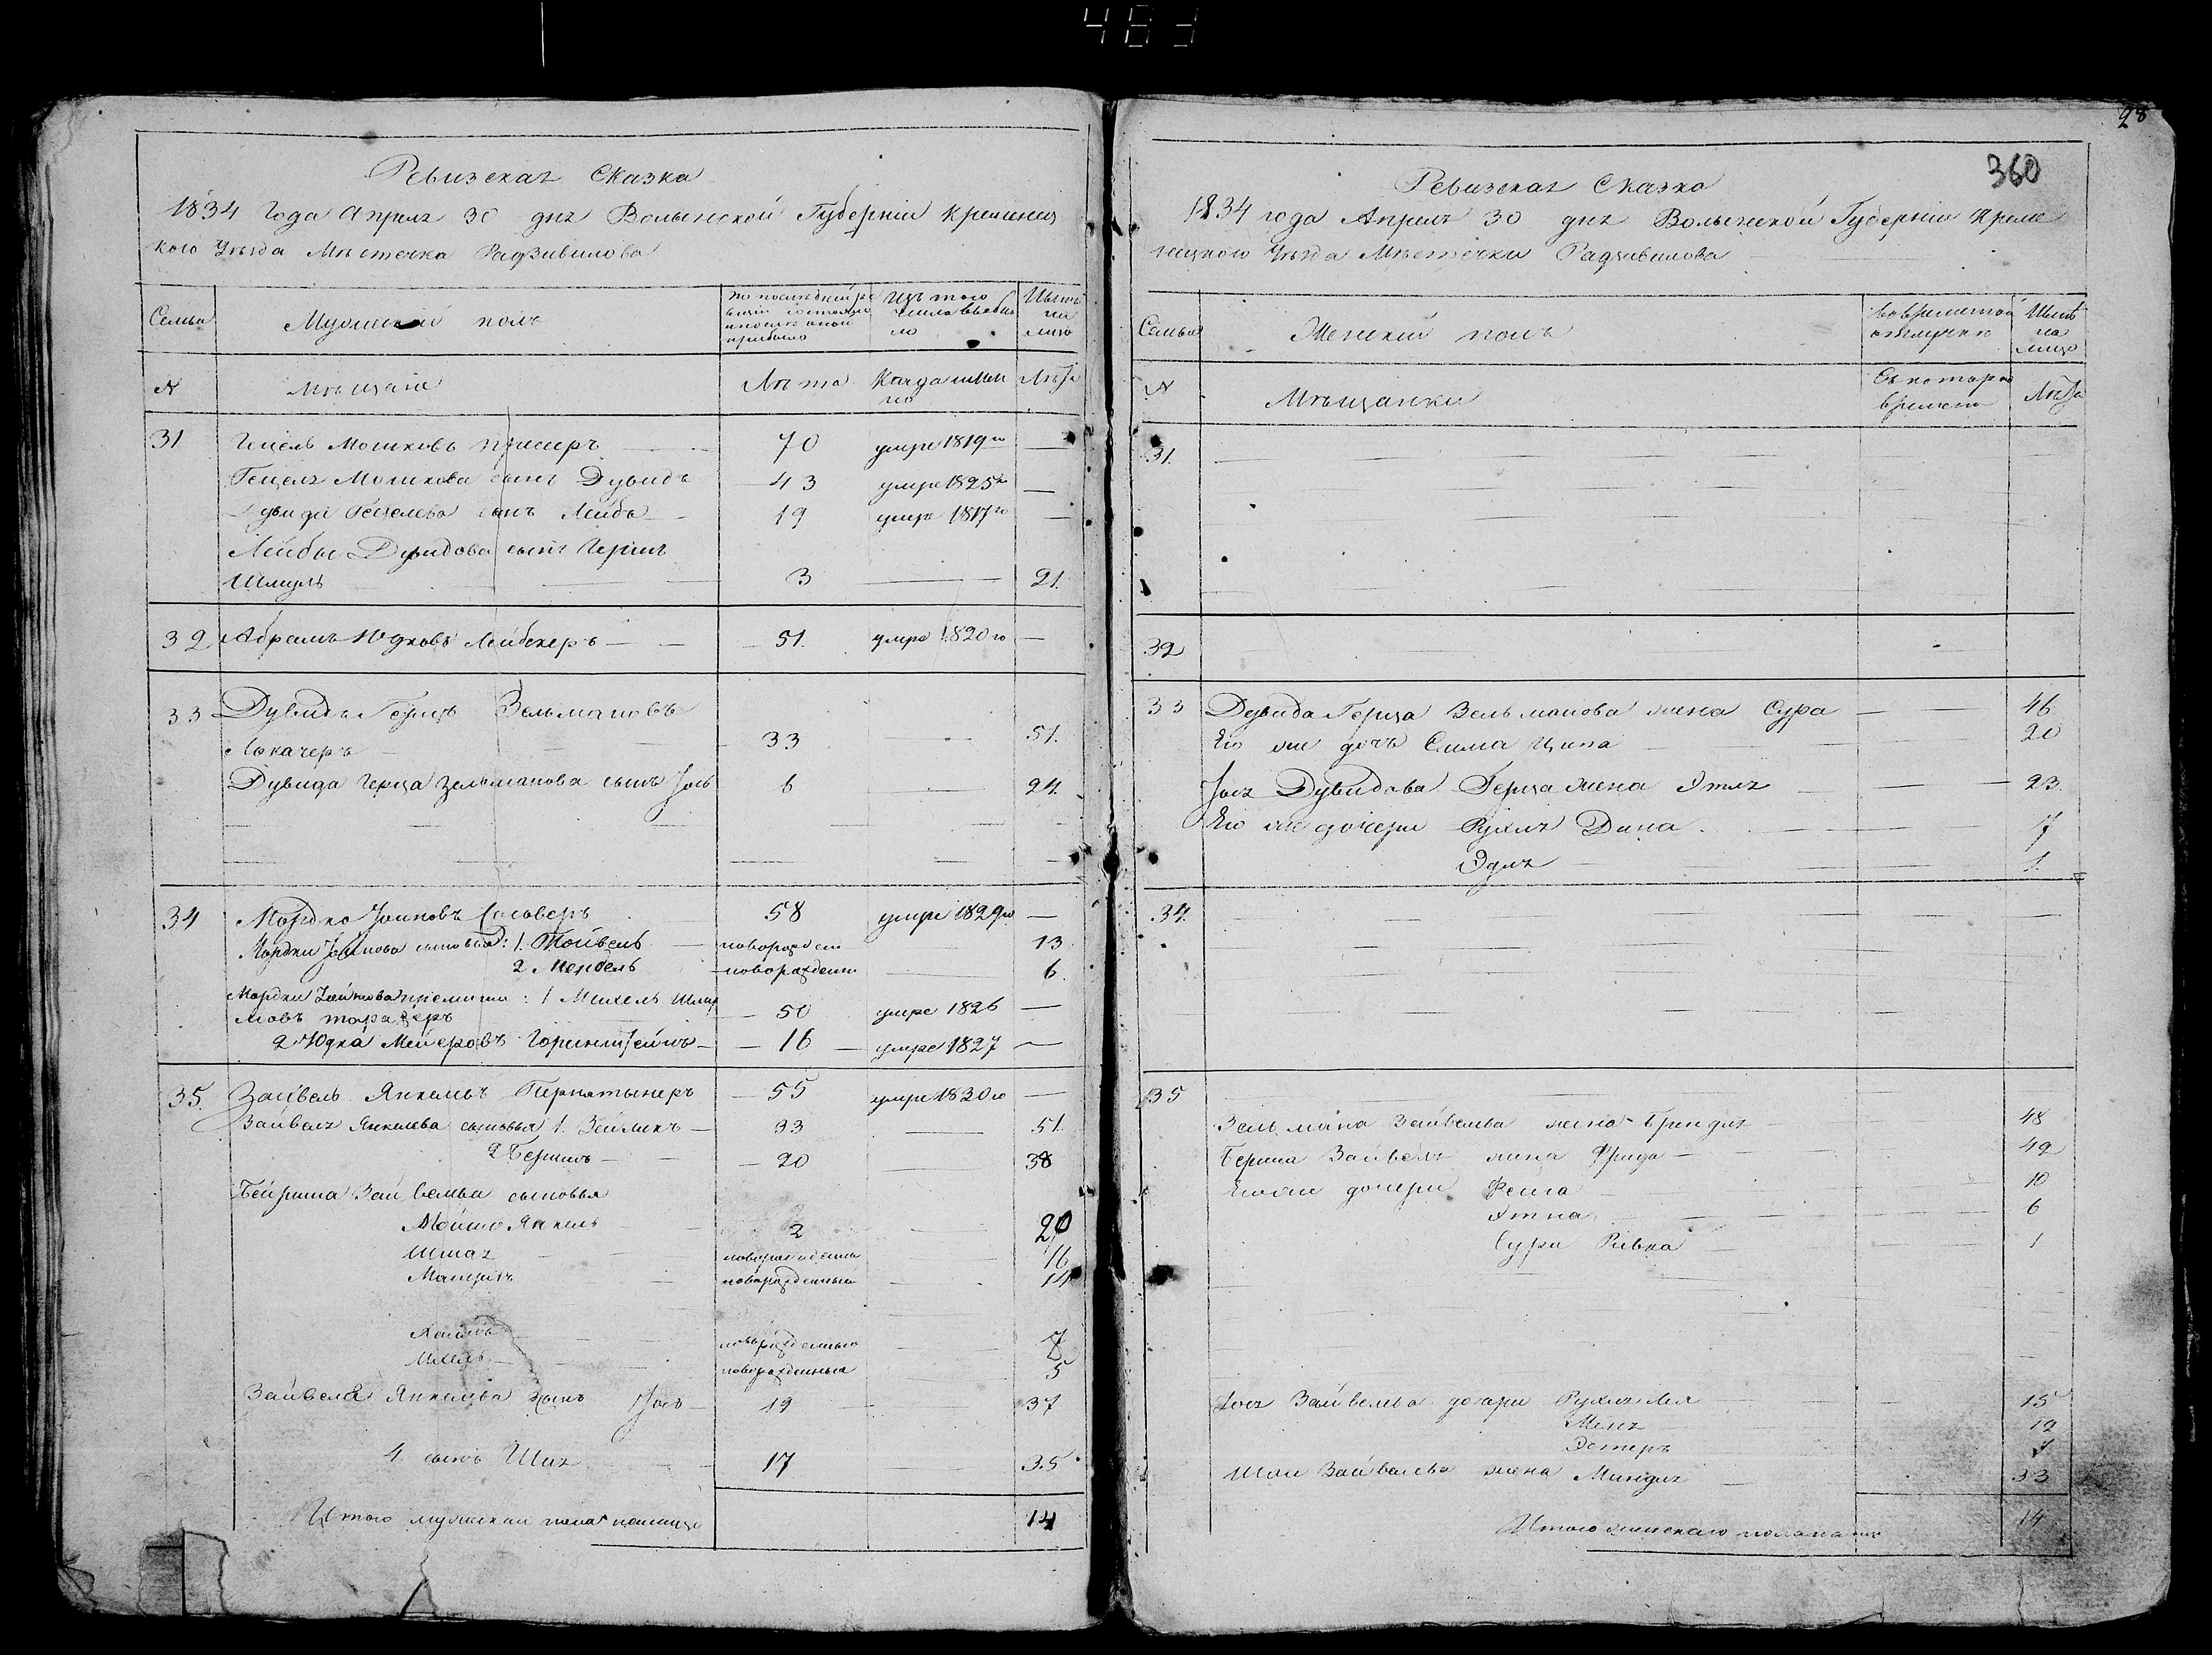 483
28
360
Ревизская Сказка
1834 Года Апреля 30 дня Волынской Губерніи Кременец
кого Уѣзда Мѣстечка Радзивилова
Семьи
Мужескій полъ
по последней ре
визіи состояло
и после оной
прибыло
Изъ того
числа выбы
ло
Нынѣ
на
лицо
N
Мѣщане
Лѣта
Когда имен
но
Лѣта
31
Гецель Мошковъ
70
умре 1819 го
—
Гецеля Мошкова сынъ Дувидъ
43
умре 1825 го
—
Дувида Гецелева сынъ Лейба
19
умре 1817 го
—
Лейбы Дувидова сынъ Гершъ
Шмуль
3
—
21.
32
Абрамъ Юдковъ Лейбенеръ
51.
умре 1820 го
—
33
Дувидъ Герцъ Зельмановъ
Локачеръ
33
—
51.
Дувида Герца Зельманова сынъ Іось
6
—
24
34
Мордко Іоиновъ
58
умре 1829 го
—
Мордки Іоинова сыновья: 1. Тойвель
новорожден
13
2 Мендель
новорожден
—
6.
Мордки Іоинова приемыши: 1 Михель Шму
левъ
50
умре 1826
—
2 Юдка Мейеровъ
16
умре 1827
—
35.
Зайвель Янкелевъ Пернатынеръ
55
умре 1830 го
—
Зайвеля Янкелева сыновья 1. Зельманъ
33
—
51.
2 Беришъ
20
38
Бейриша Зайвелева сыновья
Мойше Янкель
2
20
Шмая
новорожденны
16
новорожденный
14
новорожденные
7
Михель
новорожденные
5
Зайвеля Янкелева сынъ Іось
19
37
4 сынъ Шая
17
35
Итого мужеска пола налицо
14
Ревизская Сказка
1834 года Апреля 30 дня Волынской Губерніи Креме
нецкого Уѣзда Мѣстечки Радзивилова
Семьи
Женскій полъ
Во временной
отлучкѣ
Нынѣ
на
лицо
N
Мѣщанки
Съ которого
времени
Лѣта
31.
32
33
Дувида Герца Зельманова жена Сура
46
Его же дочь Сима Ципа
20
Іося Дувидова Герца жена Этля
23.
Его же дочери Рухля Дина
7
Эдля
1.
34.
35
Зельмана Зайвелева жена Брендля
48
Бериша Зайвель жена Фрида
42
Его же дочери Фейга
10
Этна
6
Сура Ривка
1
Іося Зайвелева дочери Рухля Лея
15
Меня
12
Эстеръ
7
Шаи Зайвелева жена Миндля
33
Итого женскаго пола на лицо
14